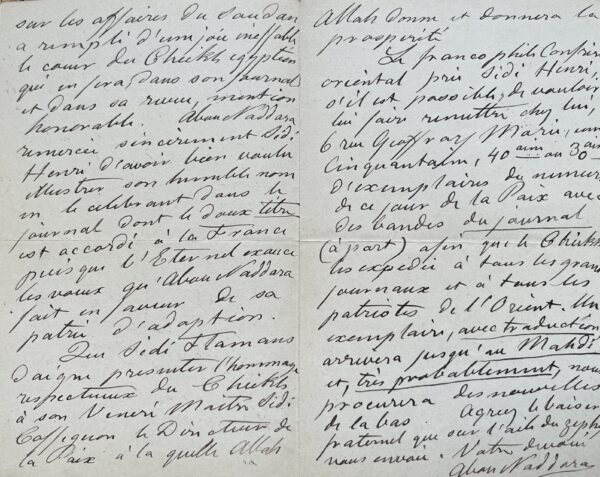 sur les affaires du Soudan
a rempli d'une joie ineffable
le cœur du Cheikh egyptien
qui en fera dans son journal
et dans sa revue, mention
honorable. Abou Naddara
remercie sincèrement Sidi
Henri d'avoir bien voulu
illustrer son humble nom
en le celebrant dans le
journal dont le doux titre
est accordé à la France
puisque l'Eternel exauce
les vœux qu'Abou Naddara
fait en faveur de sa
patrie d'adoption.
Que Sidi
daigne presenter l'hommage
respectueux du Cheikh
à son Venéré Maitre Sidi
Caffignon le Directeur de
la Paix à la quelle Allah
Allah donne et donnera la
prosperité
Le francophile Confrère
oriental prie Sidi Henri,
s'il est possible, de vouloir
lui faire remettre chez lui,
6 rue Geoffroy Marie, une
Cinquantaine, 40 aine ou 30 aine
d'exemplaires du numero
de ce jour de la Paix avec
des bandes du journal
(à part) afin que le Cheikh
les expedie à tous les grands
journaux et à tous les
patriotes de l'Orient. Un
exemplaire, avec traduction
arrivera jusqu'au Mahdi
et, très probablement, nous
procurera des nouvelles
de la bas. Agreez le baiser
fraternel que sur l'aile du zephir
vous envoie. Votre devoué
Abou Naddara